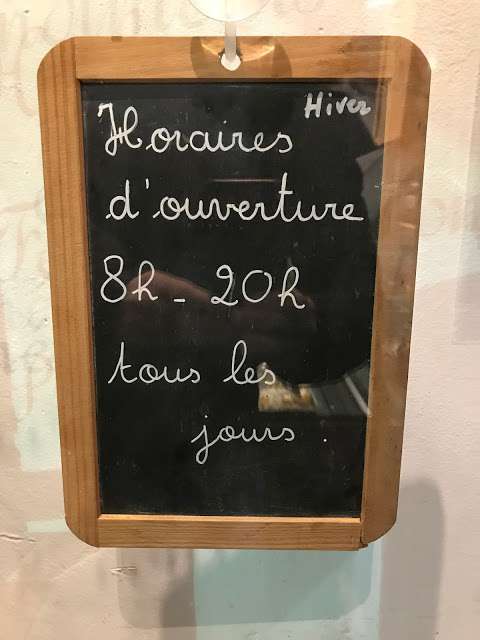 Hiver
Horaires
d'ouverture
8h - 20h
tous les
jours